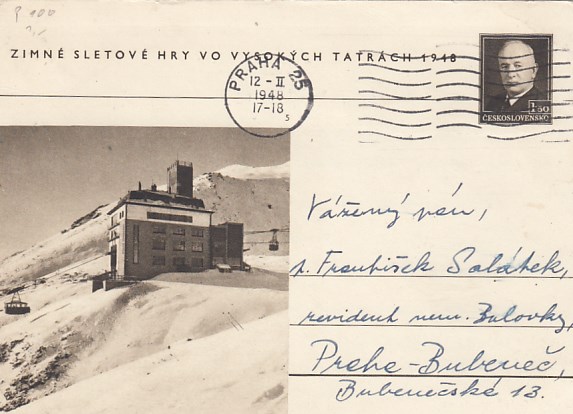 P 100
ZIMNÉ SLETOVÉ HRY VO VYSOKÝCH TATRÁCH 1948
PRAHA 25
12 - II
1948
17-18
3
1 50
ČESKOSLOVENSKO
Vážený pán,
p. František Salátek,
revident nem. Bulovky,
Praha - Bubeneč,
Bubenečská 13.